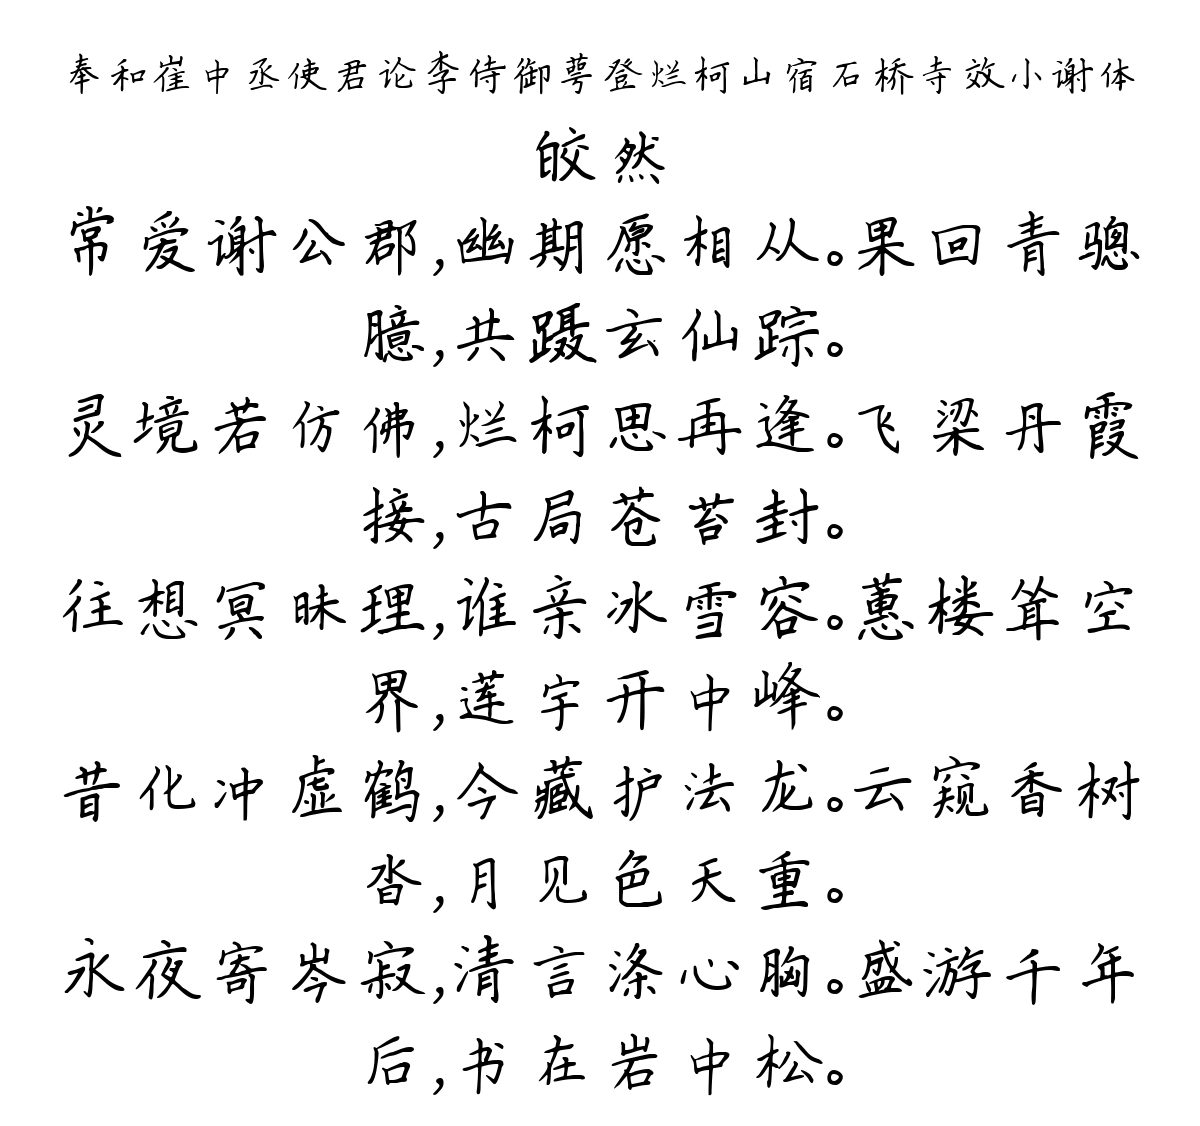 奉和崔中丞使君论李侍御萼登烂柯山宿石桥寺效小谢体
皎然
常爱谢公郡,幽期愿相从。果回青骢
臆,共蹑玄仙踪。
灵境若仿佛,烂柯思再逢。飞梁丹霞
接,古局苍苔封。
往想冥昧理,谁亲冰雪容。蕙楼耸空
界,莲宇开中峰。
昔化冲虚鹤,今藏护法龙。云窥香树
沓,月见色天重。
永夜寄岑寂,清言涤心胸。盛游千年
后,书在岩中松。